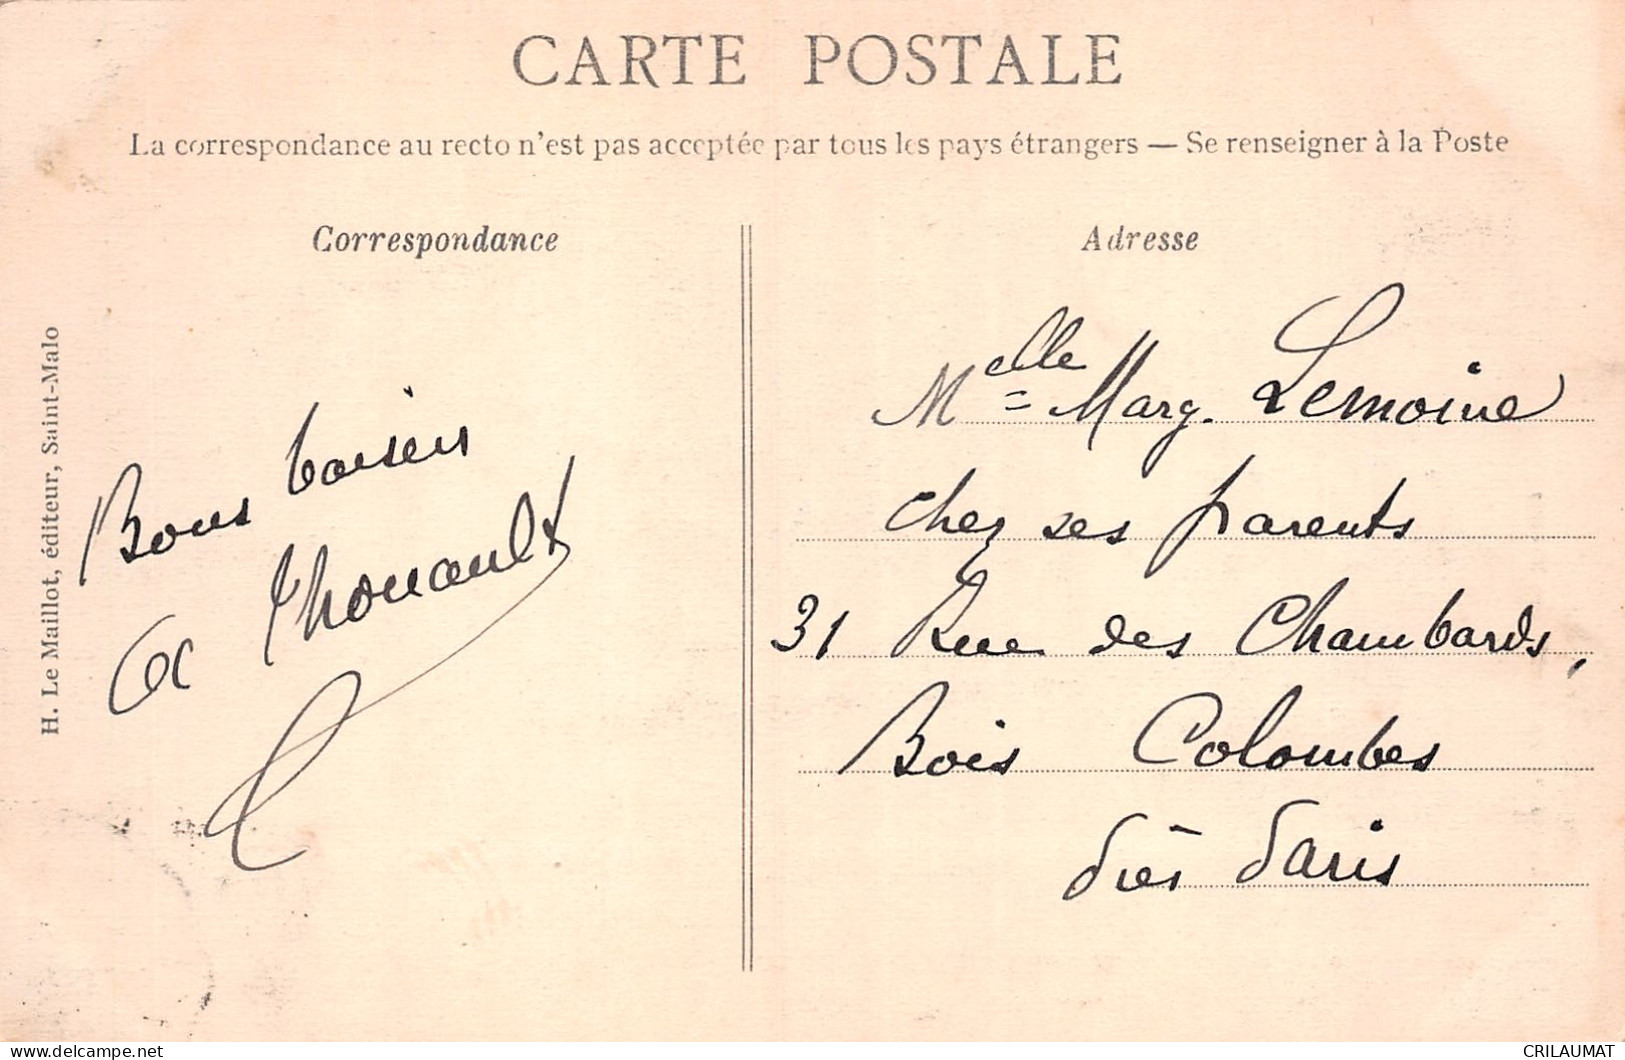 CARTE POSTALE
La correspondance au recto n'est pas acceptée par tous les pays étrangers — Se renseigner à la Poste
Correspondance
Adresse
H. Le Maillot, éditeur, Saint-Malo
Bons baisers
Thouault
Melle Marg. Lemoine
chez ses parents
31 Rue des Chambards,
Bois Colombes
près Paris
delcampe.net
CRILAUMAT